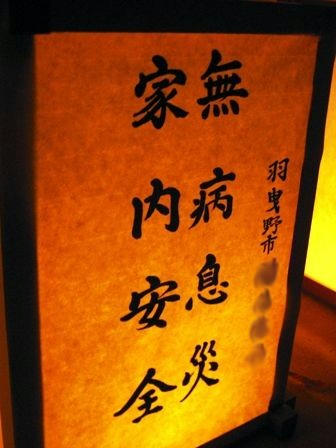 無病息災
家内安全
羽曳野市